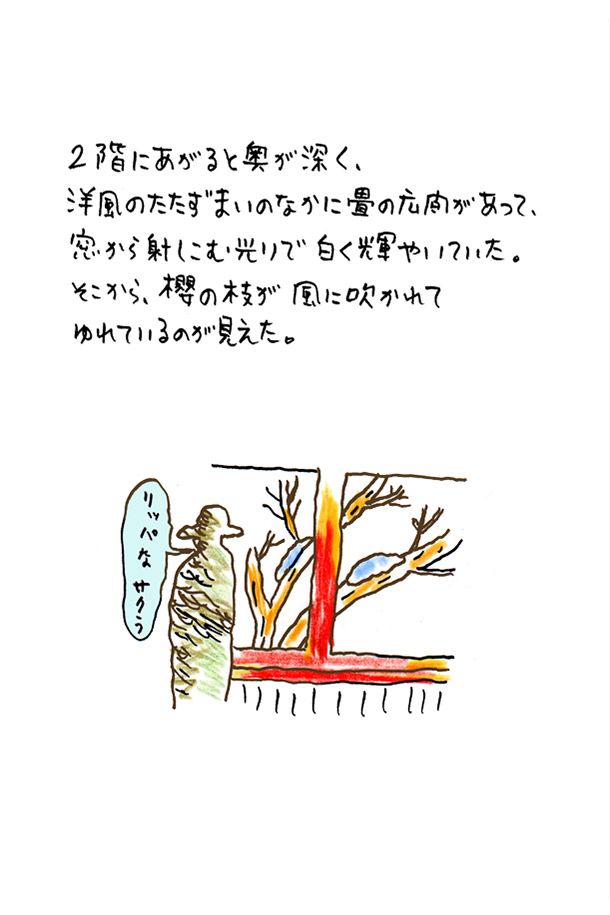 2階にあがると奥が深く、
洋風のたたずまいのなかに畳の広間があって、
窓から射しこむ光りで白く輝やいていた。
そこから、櫻の枝が風に吹かれて
ゆれているのが見えた。
リッパな サクラ